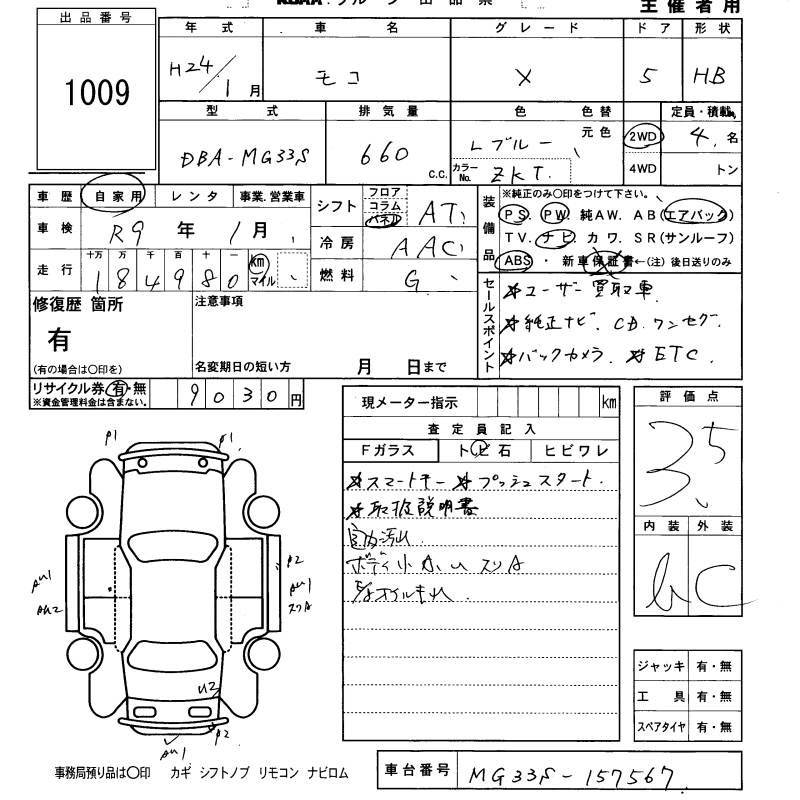 出品番号
1009
主催者用
年式 車名 グレード ドア 形状
H24/1月 モコ X 5 HB
型式 排気量 色 色替 定員・積載
DBA-MG33S 660 c.c. Lブルー 元色 2WD 4. 名
カラーNo. ZKT. 4WD トン
車歴 自家用 レンタ 事業.営業車
車検 R9年 1月
走行 十万 万 千 百 十
184980 km マイル
シフト フロア コラム パネル AT
冷房 AAC
燃料 G
装備品
※純正のみ〇印をつけて下さい。
PS. PW. 純AW. AB(エアバック)
TV. ナビ カワ. SR(サンルーフ)
ABS ・ 新車保証書←(注)後日送りのみ
セールスポイント
ユーザー買取車
純正ナビ. CD. ワンセグ.
バックカメラ. ETC.
修復歴 箇所
有
(有の場合は〇印を)
注意事項
名変期日の短い方 月 日まで
リサイクル券 有・無
※資金管理料金は含まない。
9030円
現メーター指示 km
査定員記入
Fガラス トビ石 ヒビワレ
スマートキー プッシュスタート.
取扱説明書
内汚れ
ボディ小A.U スリA
オイルもれ
評価点
3.5
内装 外装
b C
P1 P1
AU1 AU2
P2
AU1
スリA
U2
P2
AU1
ジャッキ 有・無
工具 有・無
スペアタイヤ 有・無
事務局預り品は〇印 カギ シフトノブ リモコン ナビロム
車台番号 MG33S-157567